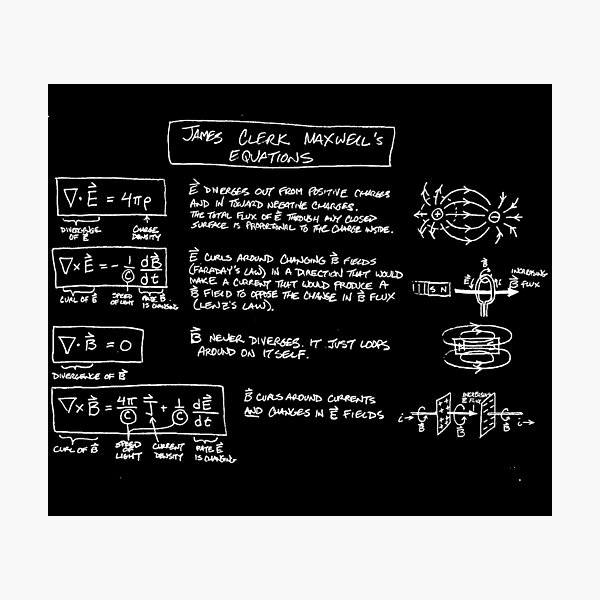 JAMES CLERK MAXWELL'S
EQUATIONS
∇·E⃗ = 4πρ
DIVERGENCE
OF E⃗
CHARGE
DENSITY
E⃗ DIVERGES OUT FROM POSITIVE CHARGES
AND IN TOWARD NEGATIVE CHARGES.
THE TOTAL FLUX OF E⃗ THROUGH ANY CLOSED
SURFACE IS PROPORTIONAL TO THE CHARGE INSIDE.
+ −
∇×E⃗ = −1/c dB⃗/dt
CURL OF E⃗
SPEED
OF LIGHT
RATE B⃗
IS CHANGING
E⃗ CURLS AROUND CHANGING B⃗ FIELDS
(FARADAY'S LAW) IN A DIRECTION THAT WOULD
MAKE A CURRENT THAT WOULD PRODUCE A
B⃗ FIELD TO OPPOSE THE CHANGE IN B⃗ FLUX
(LENZ'S LAW).
S N
INCREASING
B⃗ FLUX
∇·B⃗ = 0
DIVERGENCE OF B⃗
B⃗ NEVER DIVERGES. IT JUST LOOPS
AROUND ON ITSELF.
∇×B⃗ = 4π/c J⃗ + 1/c dE⃗/dt
CURL OF B⃗
SPEED
OF
LIGHT
CURRENT
DENSITY
RATE E⃗
IS CHANGING
B⃗ CURLS AROUND CURRENTS
AND CHANGES IN E⃗ FIELDS
INCREASING
E⃗ FLUX
i B⃗ B⃗ B⃗ i